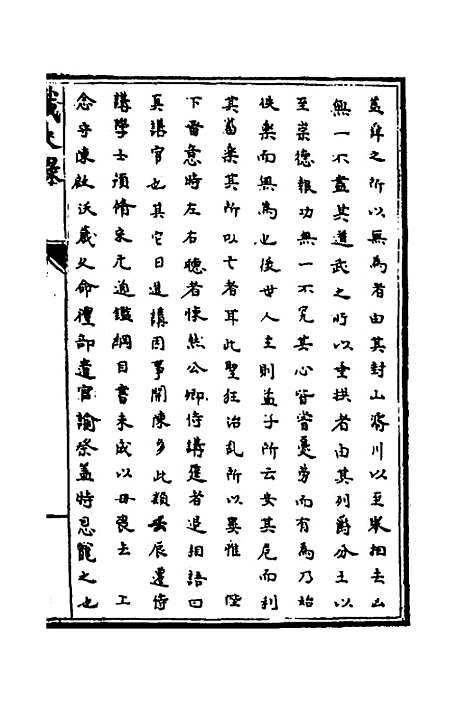 蓋舜之所以無為者由其封山濬川以至舉相去凶
無一不盡其道武之所以垂拱者由其列爵分土以
至崇德報功無一不究其心皆嘗憂勞而有為乃始
佚樂而無為也後世人主則孟子所云安其危而利
其菑樂其所以亡者耳此聖狂治亂所以異惟 陛
下留意時左右聽者悚然公卿侍講筵者退相語曰
真講官也其它日進講因事開陳多此類丙辰遷侍
講學士預脩宋元通鑑綱目書未成以母喪去 工
念守陳啟沃歲久命禮部遣官諭祭蓋特恩寵之也